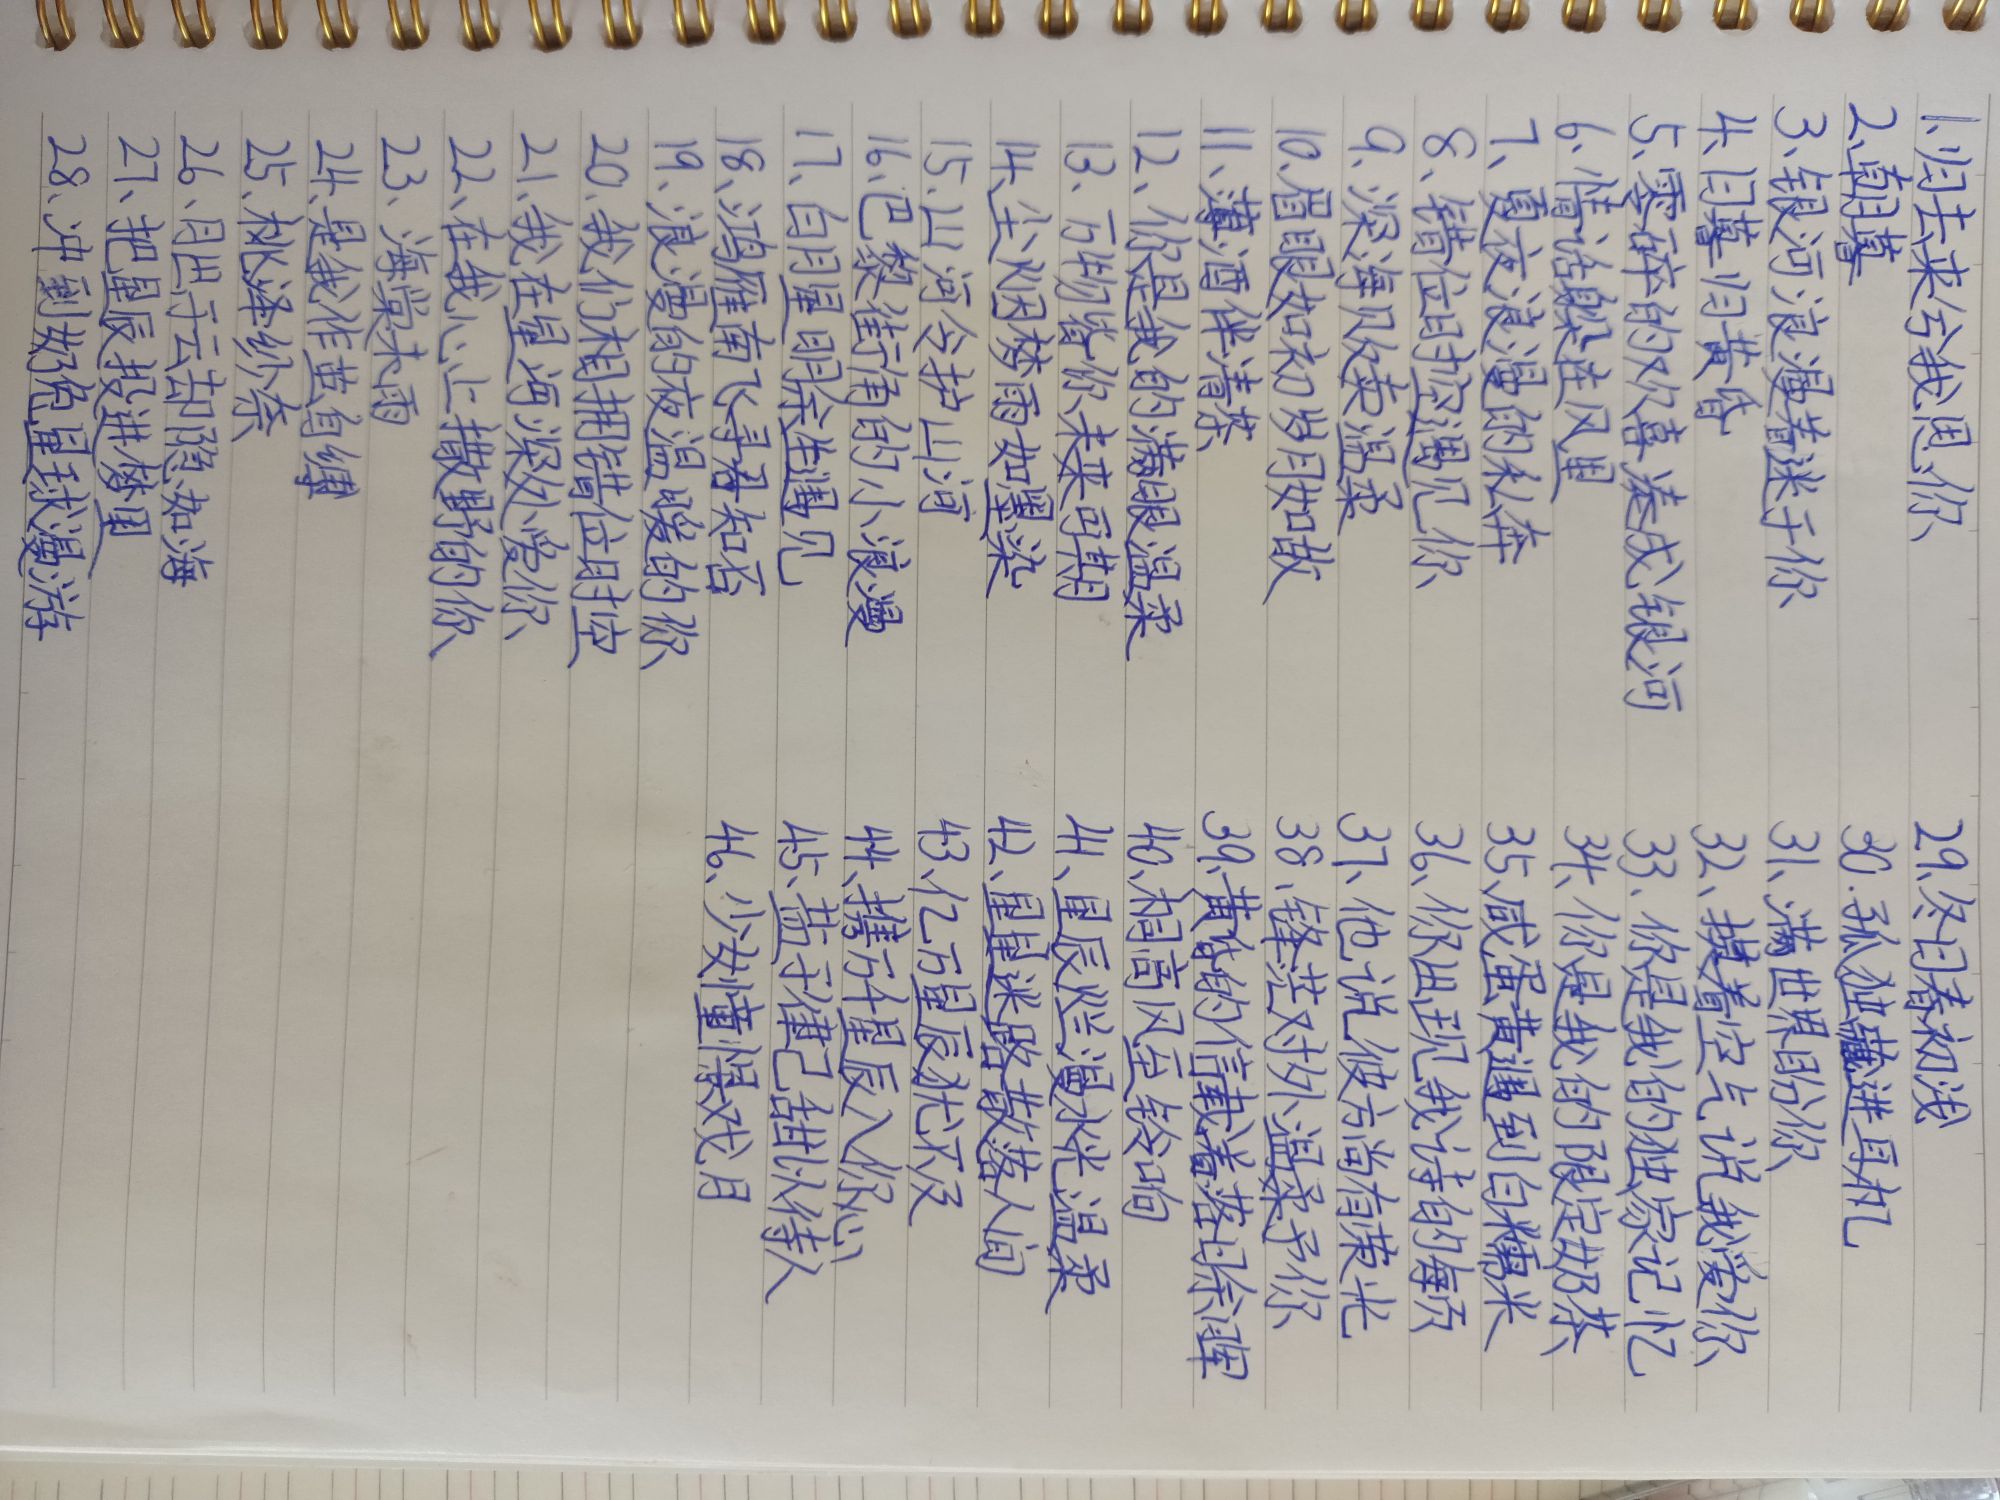 1.归去来兮我思你
2.朝暮
3.银河浪漫着迷于你
4.日暮归黄昏
5.零碎的欢喜凑成银河
6.情话躲在风里
7.夏夜浪漫的私奔
8.错位时空遇见你
9.深海贩卖温柔
10.眉眼如初岁月如故
11.薄酒伴清茶
12.你是我的满眼温柔
13.万物皆你未来可期
14.尘烟梦雨如墨染
15.山河令护山河
16.巴黎街角的小浪漫
17.白月星明余生遇见
18.鸿雁南飞寻君知否
19.浪漫的夜温暖的你
20.我们相拥错位时空
21.我在星河深处爱你
22.在我心上撒野的你
23.海棠未雨
24.是我作茧自缚
25.桃绛纱奈
26.月出于云却隐如海
27.把星辰投进梦里
28.冲到奶兔星球漫游
29.冬日春初浅
30.孤独藏进耳机
31.满世界盼你
32.摸着空气说我爱你
33.你是我的独家记忆
34.你是我的限定奶茶
35.咸蛋黄遇到白糯米
36.你出现我诗的每页
37.他说彼方尚有荣光
38.锋芒对外温柔予你
39.黄昏的信载着落日余晖
40.桐高风至铃响
41.星辰烂漫水光温柔
42.星星迷路散落人间
43.亿万星辰犹不及
44.携万千星辰入你心
45.苦于律己甜以待人
46.少女憧憬戏月